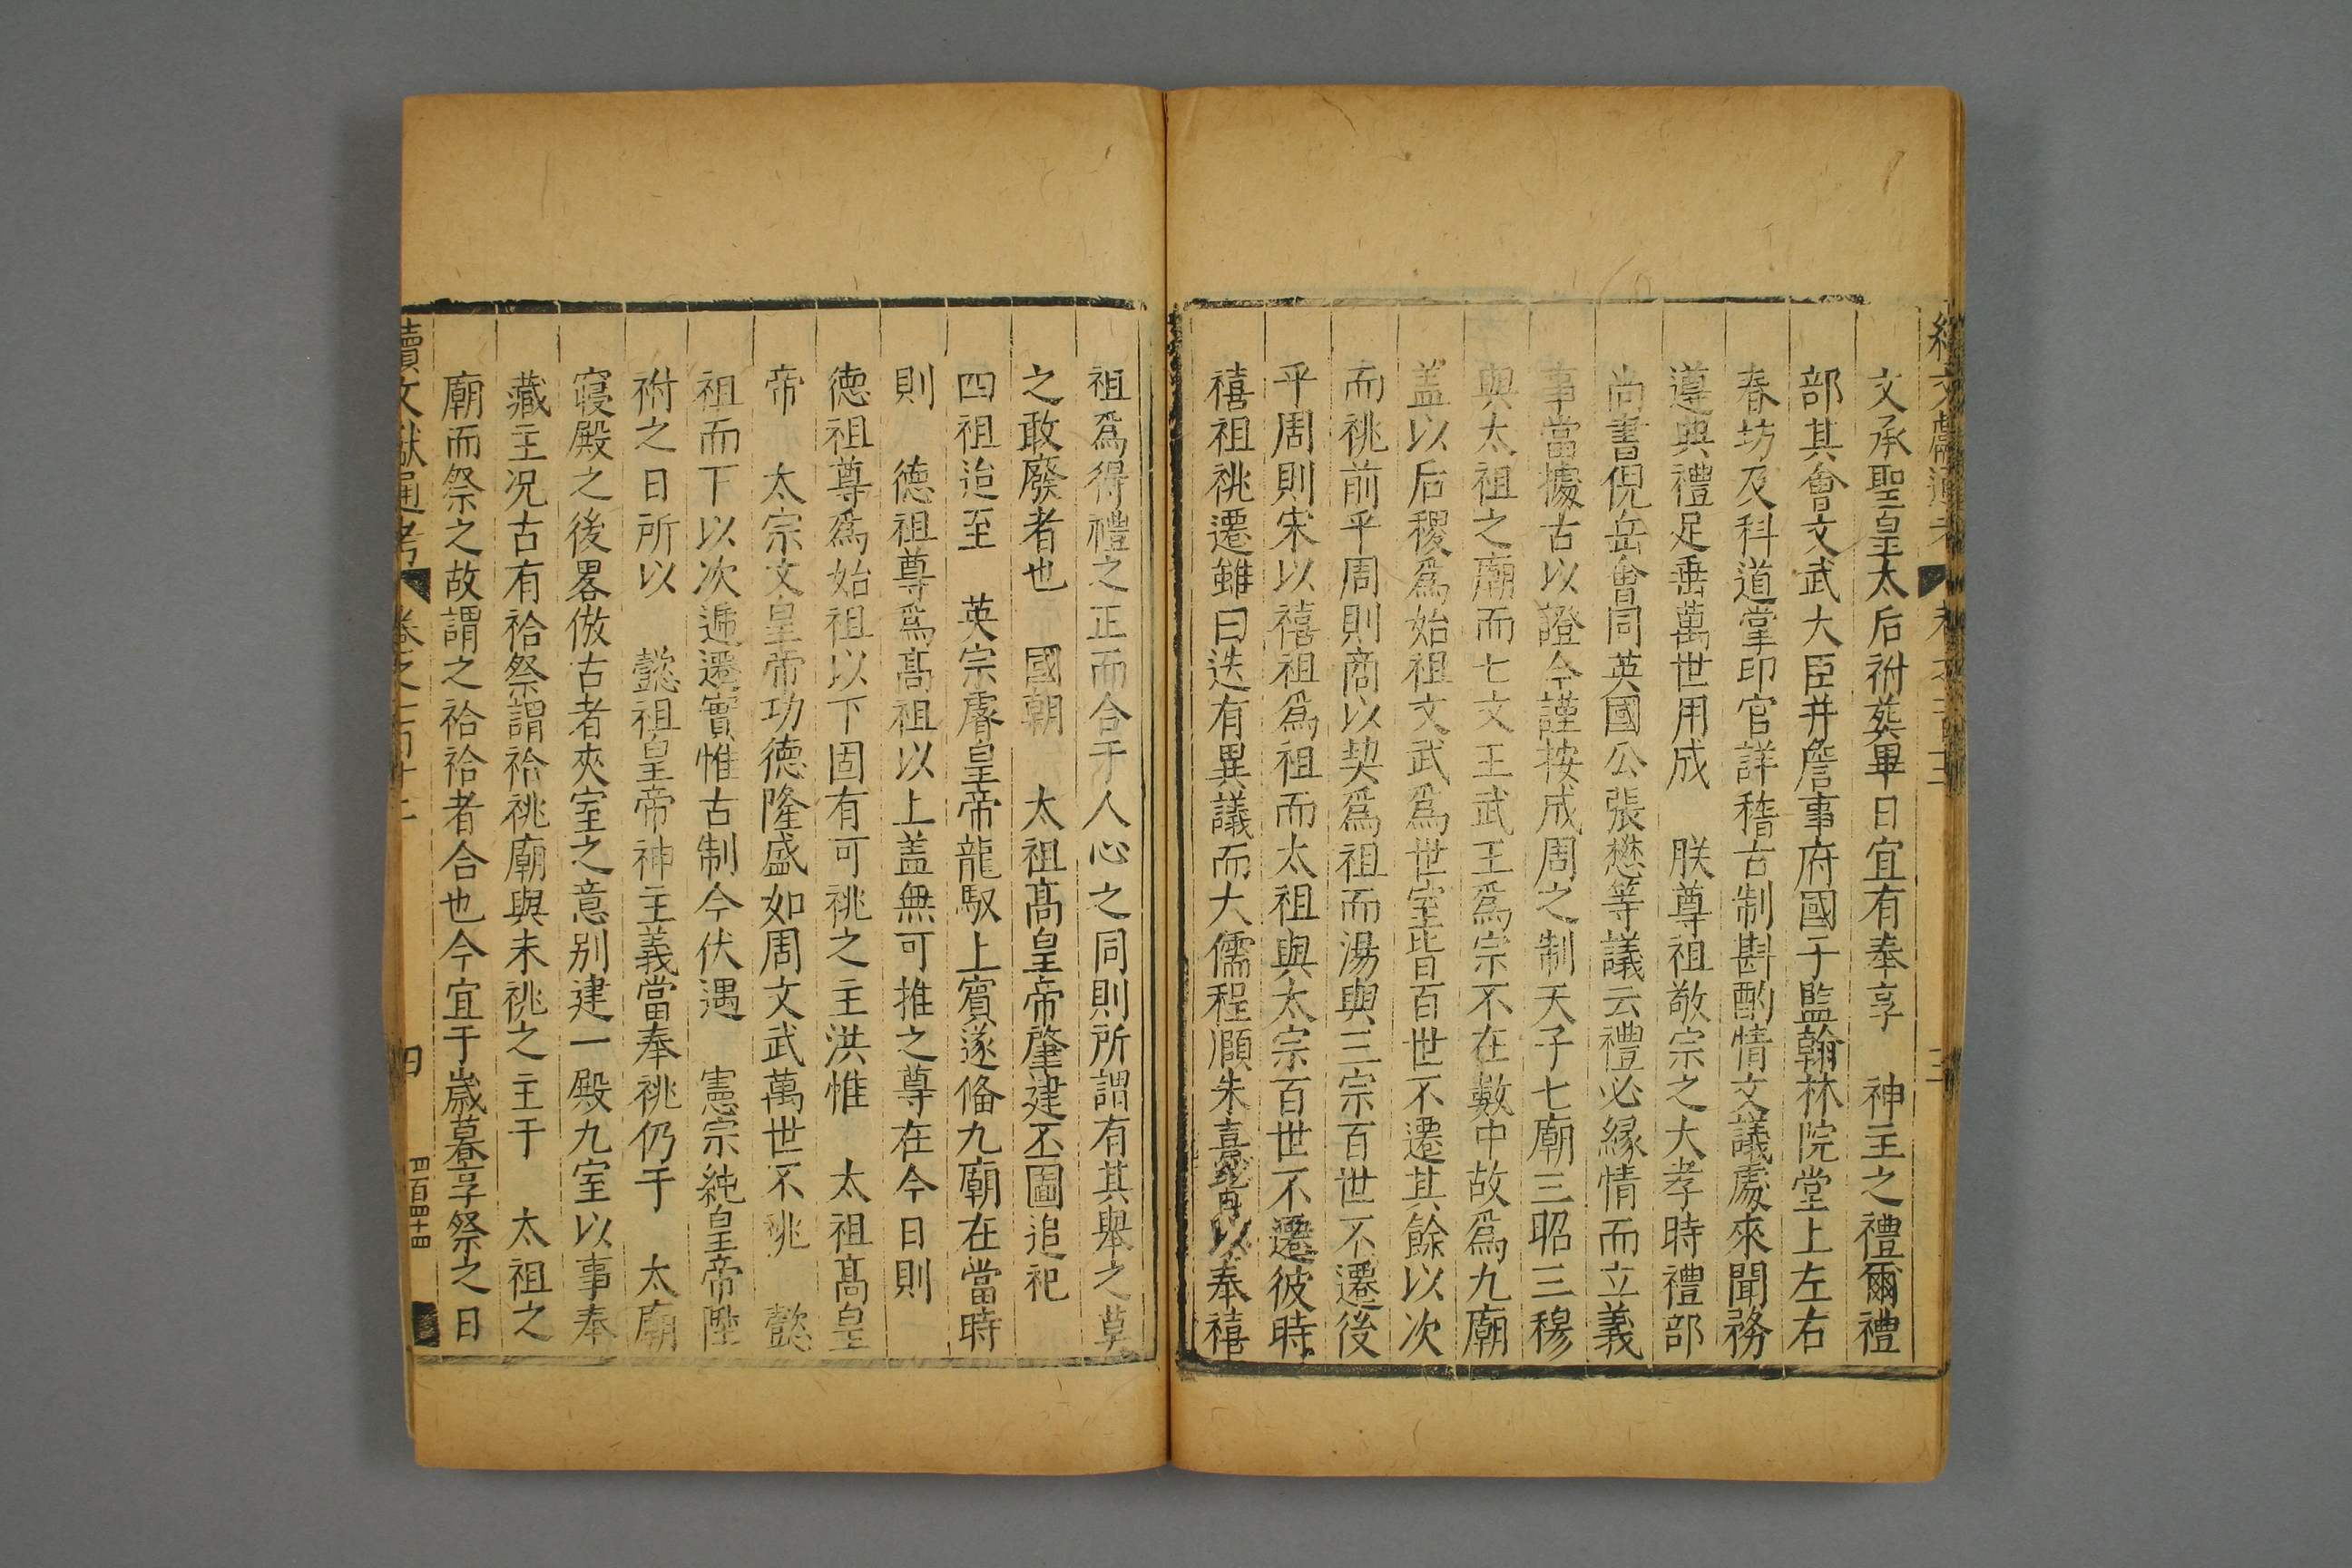 文承聖皇太后祔葬畢日宜有奉享　神主之禮爾禮
部其會文武大臣幷詹事府國子監翰林院堂上左右
春坊及科道掌印官詳稽古制斟酌情文議處來聞務
遵典禮足垂萬世用成　朕尊祖敬宗之大孝時禮部
尚書倪岳會同英國公張懋等議云禮必緣情而立義
事當據古以證今謹按成周之制天子七廟三昭三穆
與太祖之廟而七文王武王爲宗不在數中故爲九廟
盖以后稷爲始祖文武爲世室皆百世不遷其餘以次
而祧前乎周則商以契爲祖而湯與三宗百世不遷後
乎周則宋以禧祖爲祖而太祖與太宗百世不遷彼時
禧祖祧遷雖曰迭有異議而大儒程頤朱熹以奉禧
祖爲得禮之正而合于人心之同則所謂有其舉之莫
之敢廢者也　國朝　太祖髙皇帝肇建丕圖追祀
四祖迨至　英宗睿皇帝龍馭上賓遂俻九廟在當時
則　德祖尊爲髙祖以上盖無可推之尊在今日則
德祖尊爲始祖以下固有可祧之主洪惟　太祖髙皇
帝　太宗文皇帝功德隆盛如周文武萬世不祧　懿
祖而下以次遞遷實惟古制今伏遇　憲宗純皇帝陞
祔之日所以　懿祖皇帝神主義當奉祧仍于　太廟
寢殿之後畧倣古者夾室之意别建一殿九室以事奉
藏主况古有祫祭謂祫祧廟與未祧之主于　太祖之
廟而祭之故謂之祫祫者合也今宜于歲暮享祭之日
續文獻通考　卷之一百十二　四　四百四十四